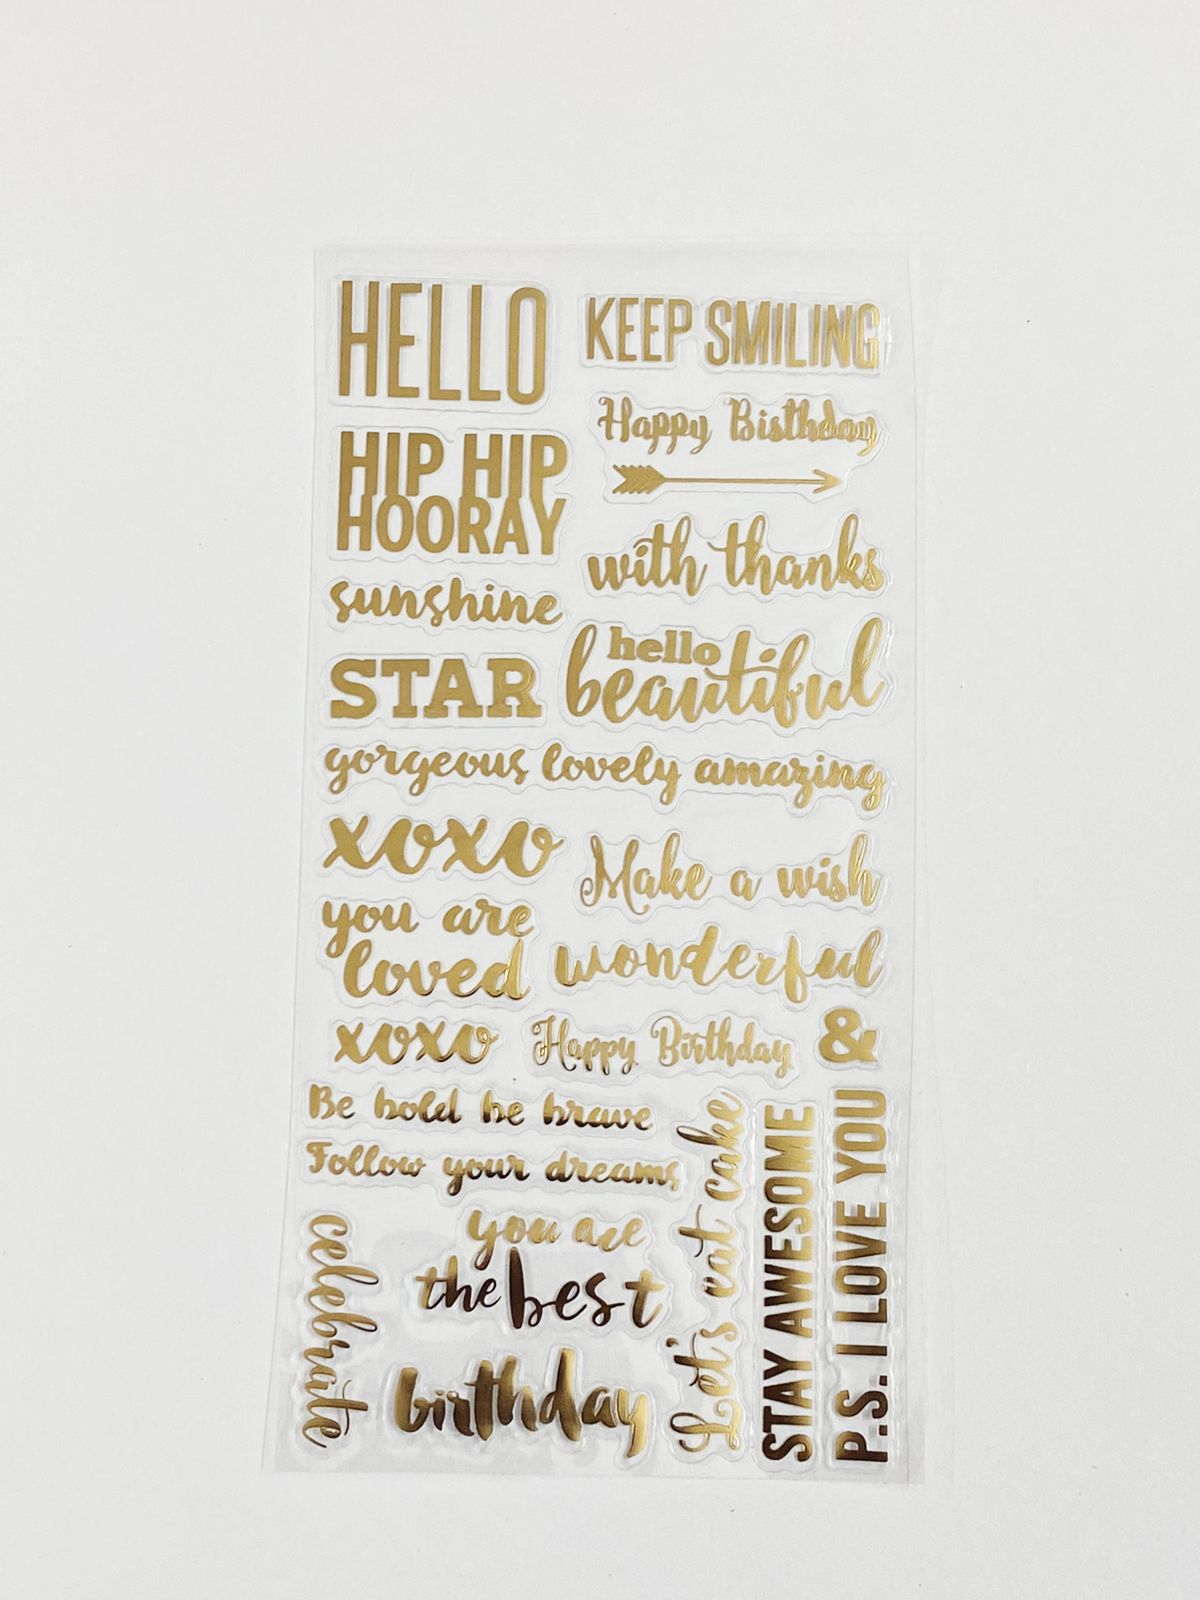 HELLO
KEEP SMILING
Happy Birthday
HIP HIP
HOORAY
with thanks
sunshine
hello
beautiful
STAR
gorgeous lovely amazing
xoxo
Make a wish
you are
loved
wonderful
xoxo
Happy Birthday
&
Be bold be brave
Follow your dreams
you are
the best
celebrate
birthday
Let's eat cake
STAY AWESOME
P.S. I LOVE YOU